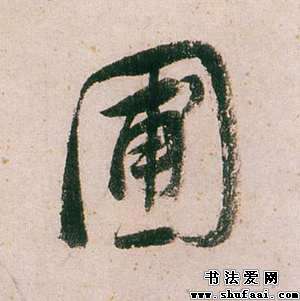 圃
书法爱网
www.shufaai.com